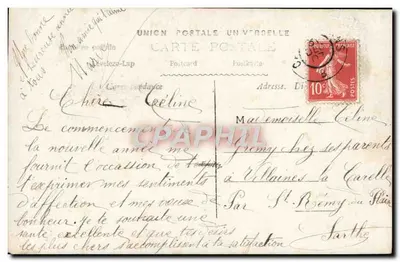 UNION POSTALE UNIVERSELLE
CARTE POSTALE
Postcard
Chère Céline
Le commencement de
la nouvelle année me
fournit l'occasion de
t'exprimer mes sentiments
d'affection et mes voeux de
bonheur. Je te souhaite une
santé excellente et que tes désirs
les plus chers s'accomplissent à ta satisfection
Mademoiselle Céline
chez ses parents
à Villaines la Carelle
Par St Rémy du Plain
Sarthe
10
POSTES
CPAPHIL.COM